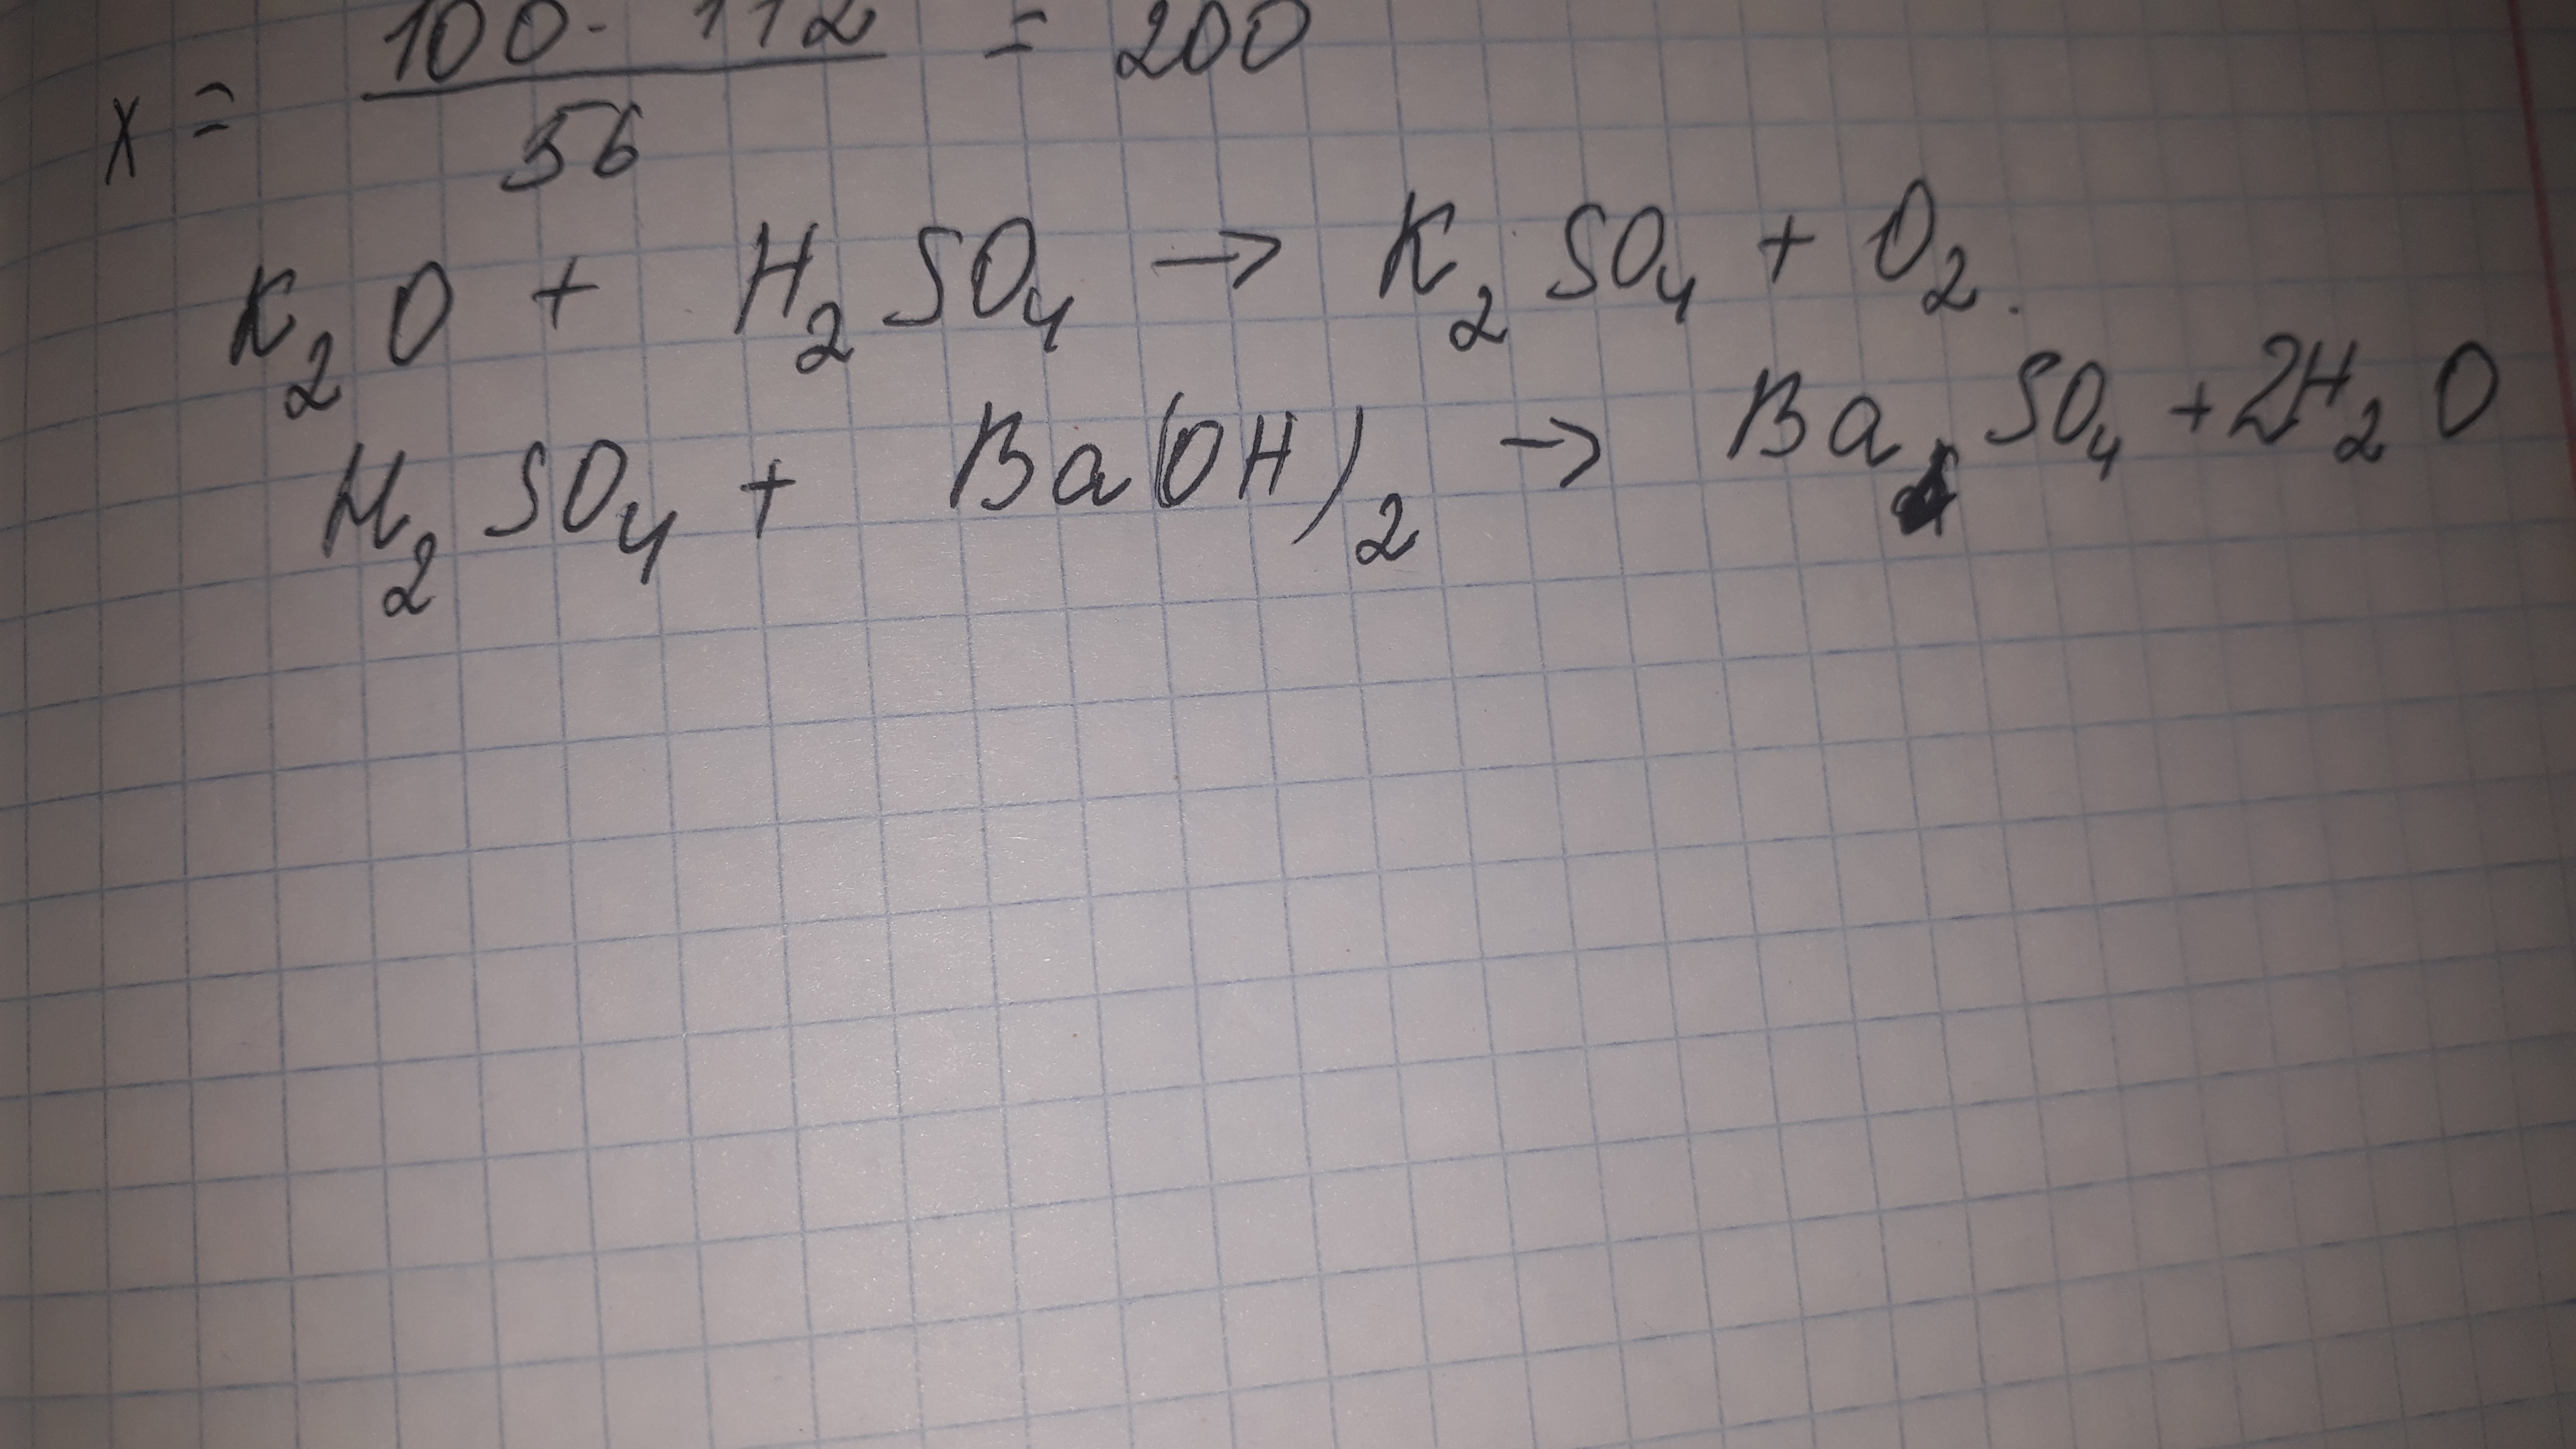 x = 100 · 112 / 56 = 200
K₂O + H₂SO₄ → K₂SO₄ + O₂.
H₂SO₄ + Ba(OH)₂ → BaSO₄ + 2H₂O